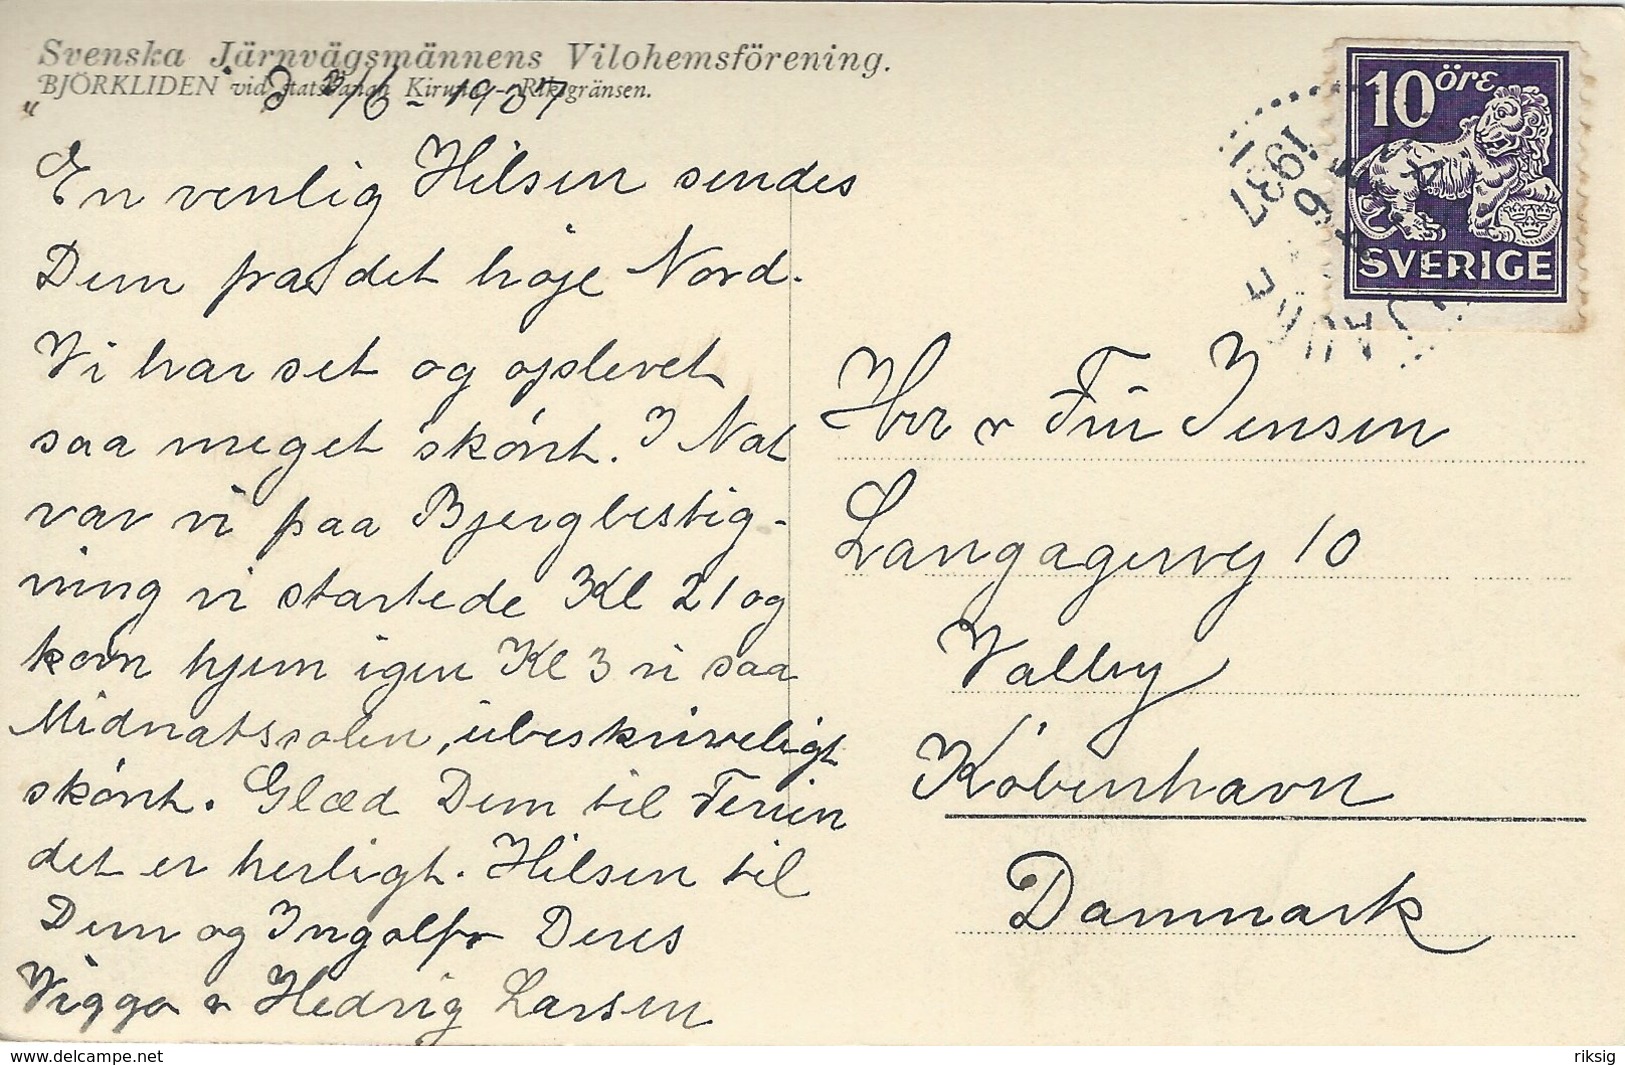 Svenska Järnvägsmännens Vilohemsförening.
"BJÖRKLIDEN" vid statsbanan Kiruna—Riksgränsen.
/6 - 1937
En venlig Hilsen sendes
Dem fra det høje Nord.
Vi har set og oplevet
saa meget skønt. I Nat
var vi paa Bjergbestig-
ning vi startede Kl 21 og
kom hjem igen Kl 3 vi saa
Midnatssolen, ubeskriveligt
skønt. Glæd Dem til Ferien
det er herligt. Hilsen til
Dem og Ingolf fr Deres
Viggo & Hedvig Larsen
10 ÖRE
SVERIGE
6
1937
Herr & Fru Jensen
Langagervej 10
Valby
København
Danmark
delcampe.net
riksig